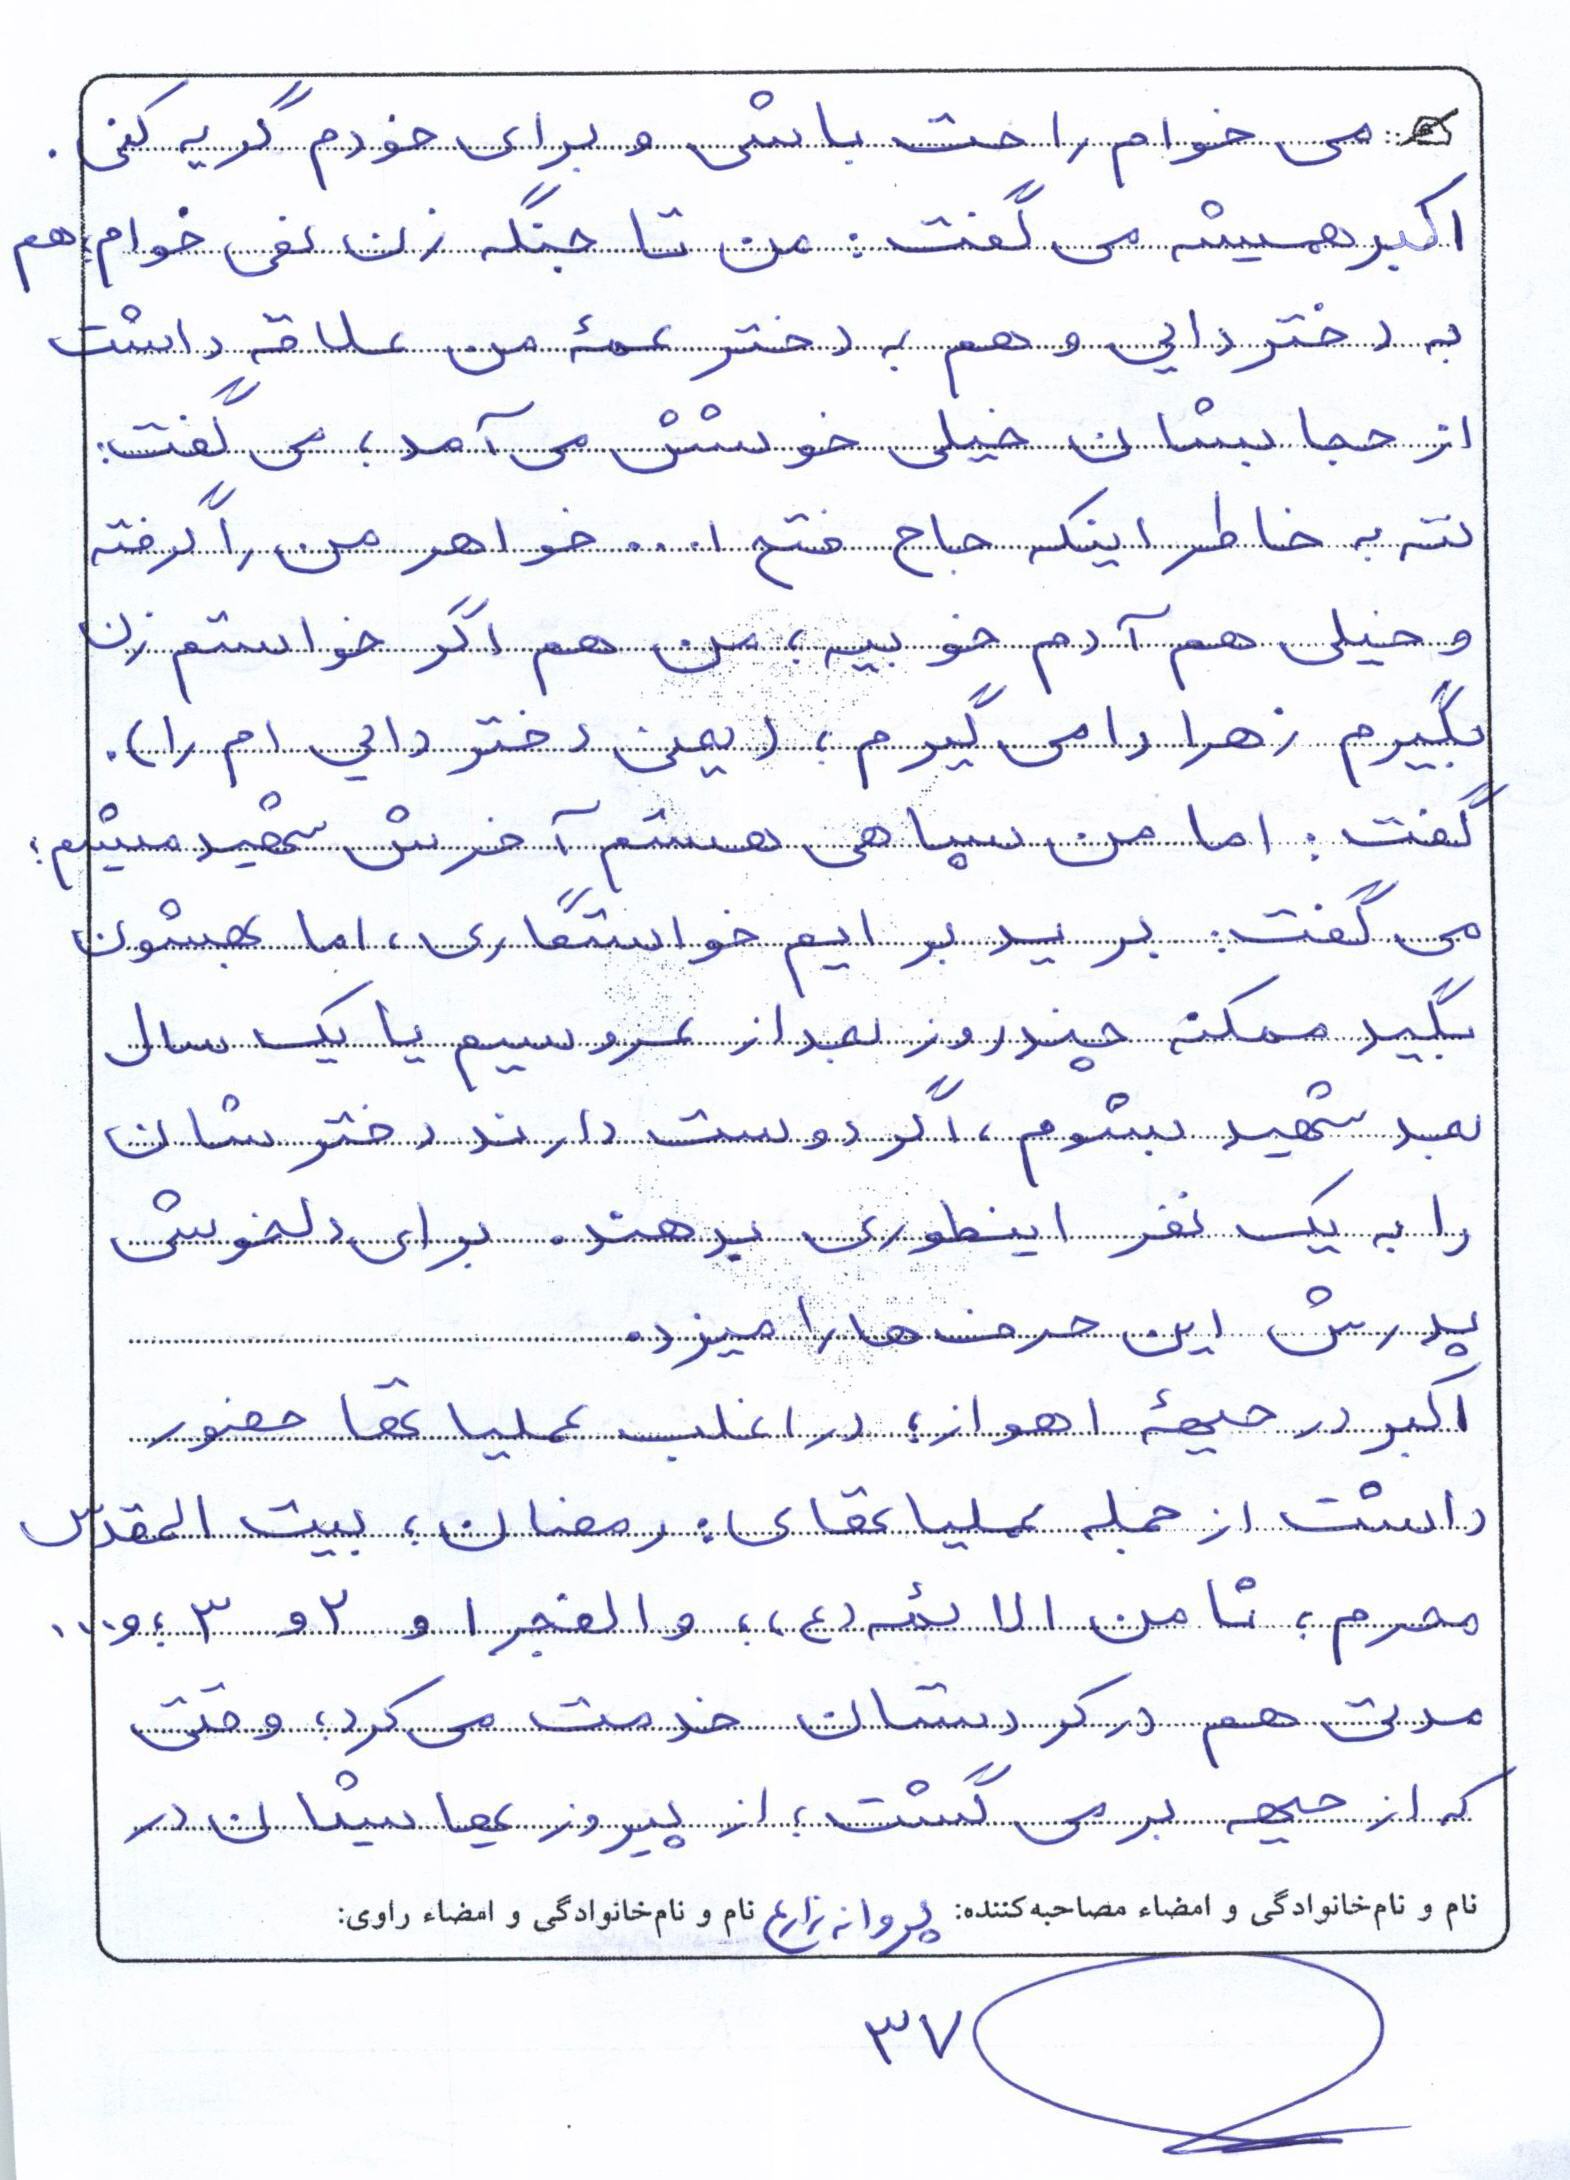 می خوام راحت باشی و برای خودم گریه کنی.
اکبر همیشه می گفت: من تا جنگه زن نمی خوام؛ هم
به دختر دایی و هم به دختر عمۀ من علاقه داشت
از حجابشان خیلی خوشش می آمد؛ می گفت:
ننه به خاطر اینکه حاج فتح ا... خواهر من را گرفته
و خیلی هم آدم خوبیه؛ من هم اگر خواستم زن
بگیرم زهرا را می گیرم؛ (یعنی دختر دایی ام را).
گفت: اما من سپاهی هستم آخرش شهید میشم؛
می گفت: برید برایم خواستگاری، اما بهشون
بگید ممکنه چند روز بعد از عروسیم یا یک سال
بعد شهید بشوم، اگر دوست دارند دخترشان
را به یک نفر اینطوری بدهند. برای دلخوشی
پدرش این حرف ها را میزد.
اکبر در جبهۀ اهواز؛ در اغلب عملیاتها حضور
داشت از جمله عملیاتهای: رمضان؛ بیت المقدس
محرم؛ ثامن الائمه (ع)؛ والفجر ۱ و ۲ و ۳؛ و...
مدتی هم در کردستان خدمت می کرد؛ وقتی
که از جبهه بر می گشت؛ از پیروزیهایشان در
نام و نام‌خانوادگی و امضاء مصاحبه‌کننده: پروانه زارع نام و نام‌خانوادگی و امضاء راوی:
۳۷